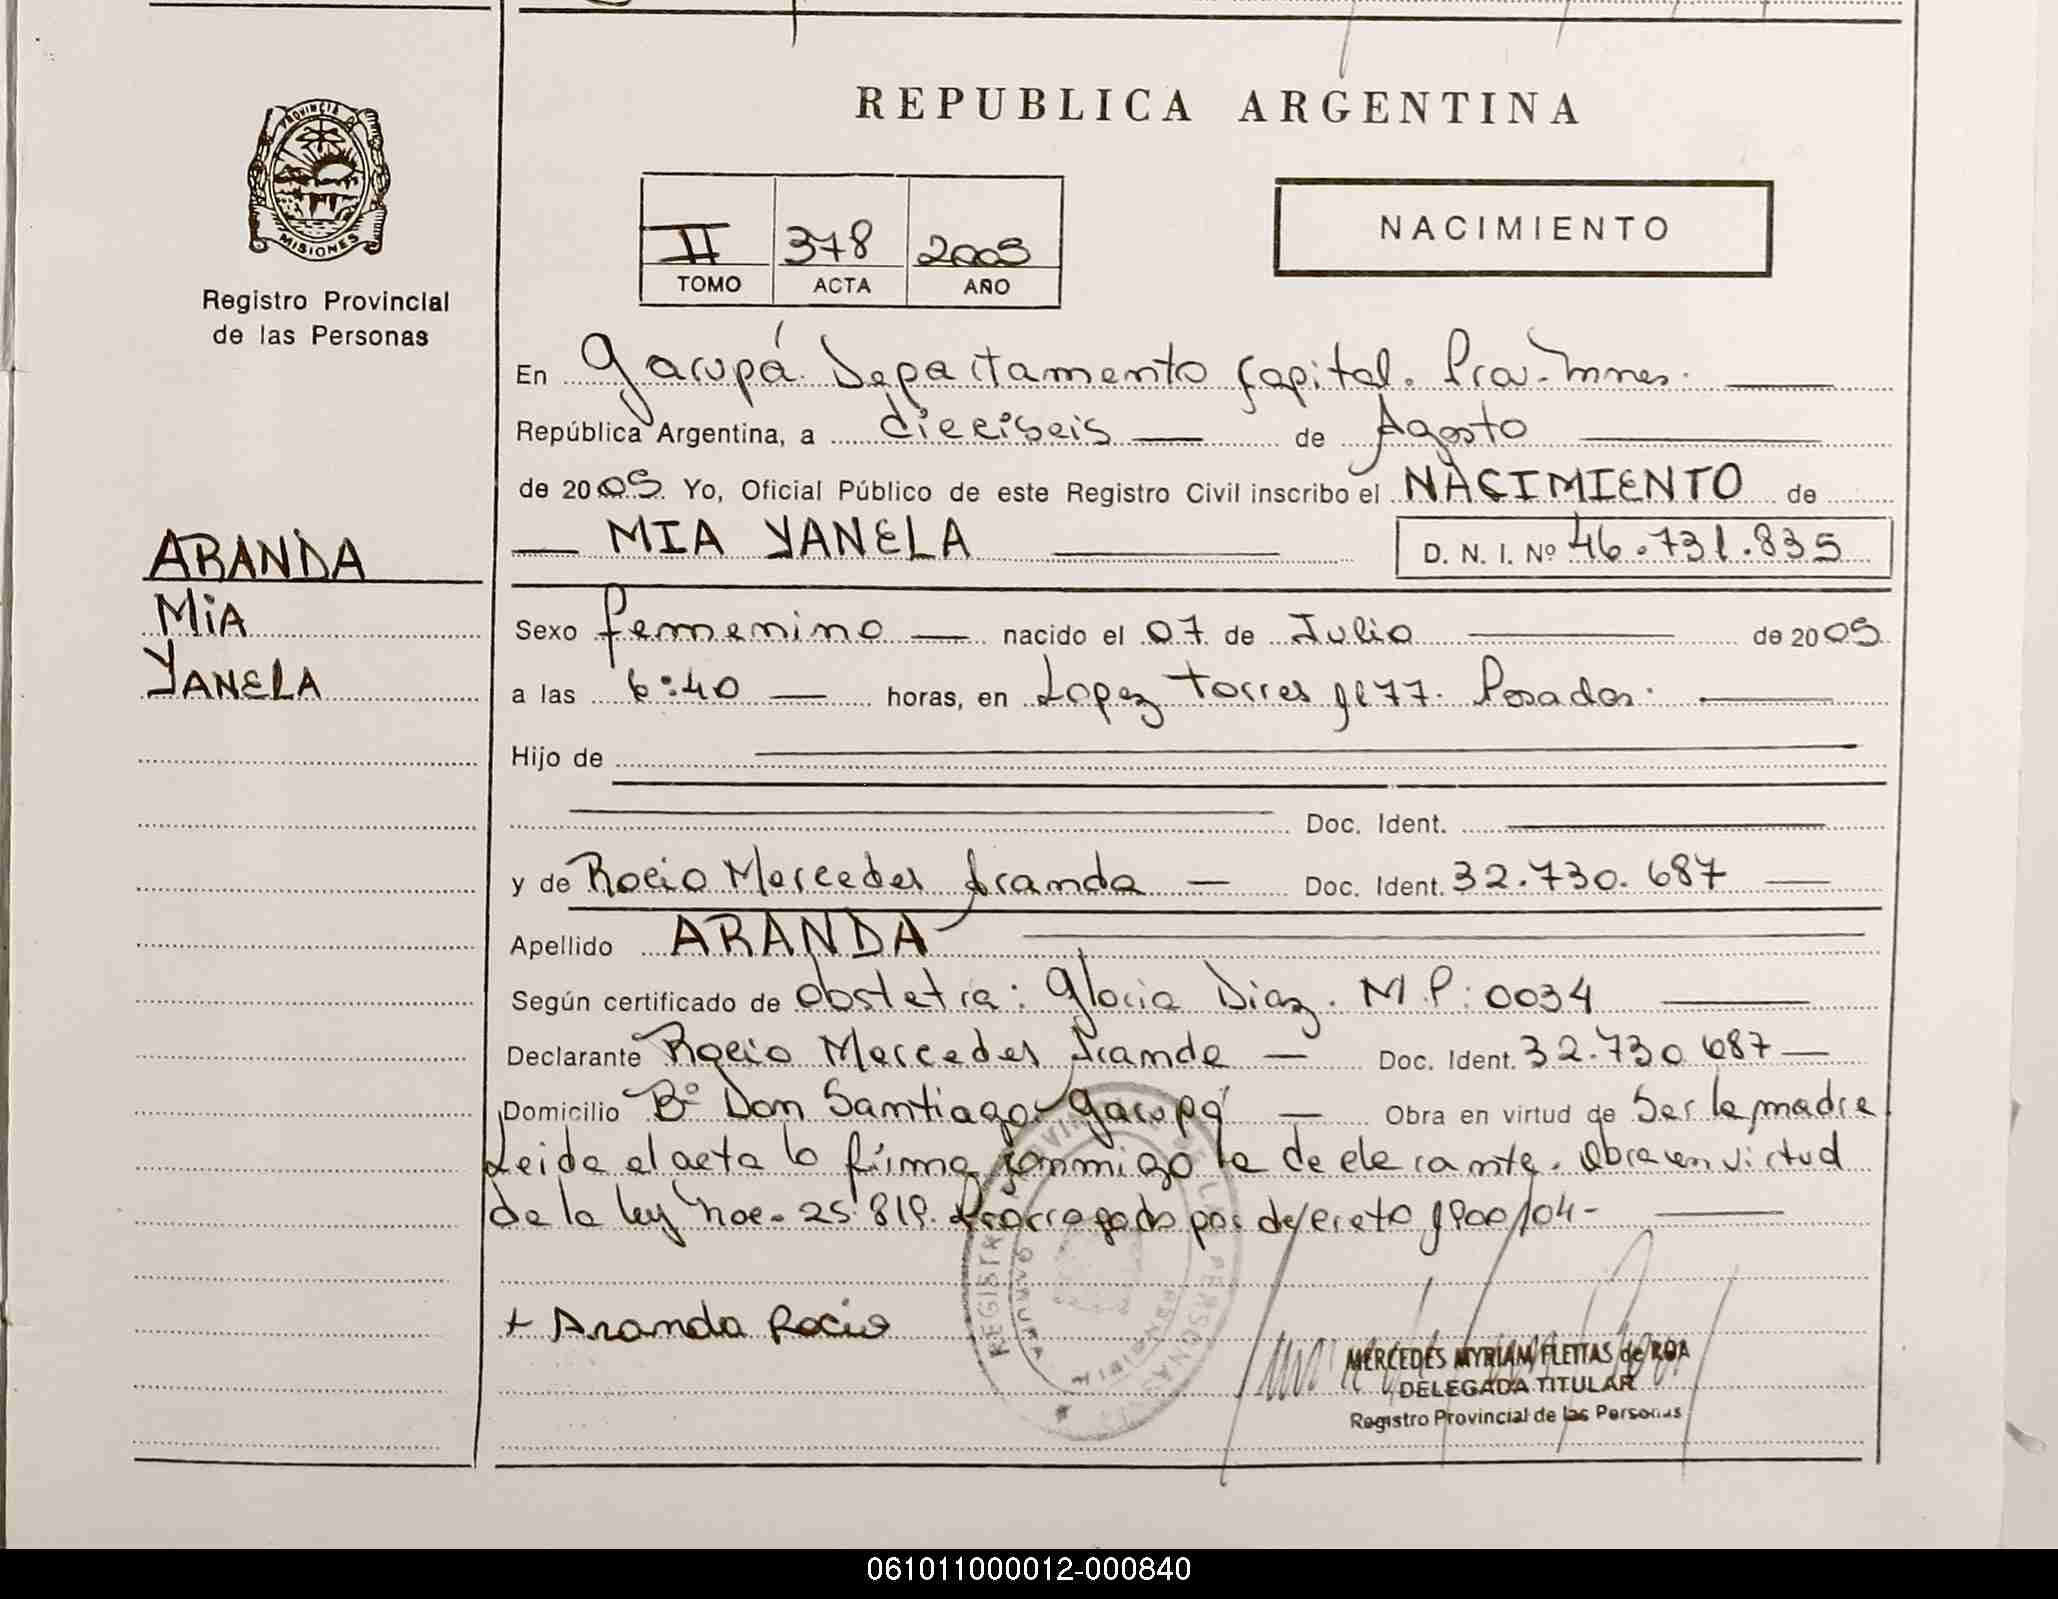 REPUBLICA ARGENTINA
PROVINCIA DE
MISIONES
Registro Provincial
de las Personas
II 378 2005
TOMO ACTA AÑO
NACIMIENTO
En Garupá. Departamento Capital. Prov. Mnes.
República Argentina, a dieciseis de Agosto
de 2005. Yo, Oficial Público de este Registro Civil inscribo el NACIMIENTO de
MIA YANELA D. N. I. Nº 46.731.835
ARANDA
MiA
YANELA
Sexo femenino nacido el 07 de Julio de 2005
a las 6:40 horas, en Lopez Torres 1177. Posadas.
Hijo de
Doc. Ident.
y de Rocio Mercedes Aranda Doc. Ident. 32.730.687
Apellido ARANDA
Según certificado de obstetra: Gloria Diaz. M.P: 0034
Declarante Rocio Mercedes Aranda Doc. Ident. 32.730.687
Domicilio Bº Don Santiago Garupá Obra en virtud de Ser la madre
Leida el acta la firma conmigo la declarante. Obra en virtud
de la ley 25.819. Prorrogado por decreto 1900/04-
+ Aranda Rocio
MERCEDES MYRIAM FLEITAS de ROA
DELEGADA TITULAR
Registro Provincial de las Personas
061011000012-000840